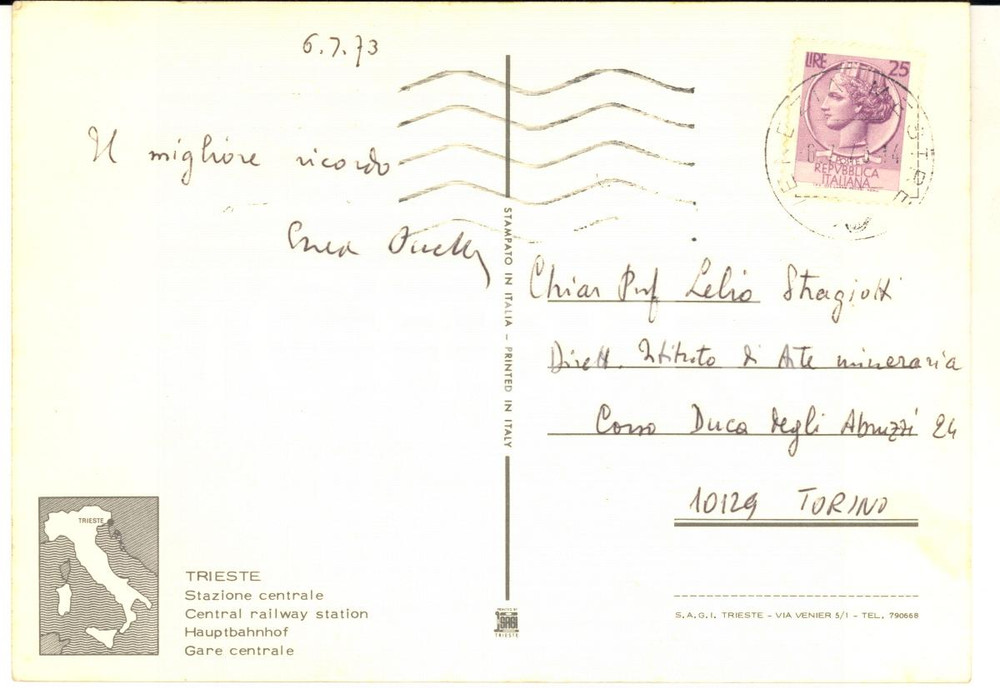 6.7.73
Il migliore ricordo
LIRE 25
REPVBBLICA
ITALIANA
STAMPATO IN ITALIA – PRINTED IN ITALY
Chiar Prof Lelio Stragiotti
Dirett. Istituto di Arte mineraria
Corso Duca degli Abruzzi 24
10129 TORINO
TRIESTE
TRIESTE
Stazione centrale
Central railway station
Hauptbahnhof
Gare centrale
SAGI
TRIESTE
S.A.G.I. TRIESTE – VIA VENIER 5/1 – TEL. 790668